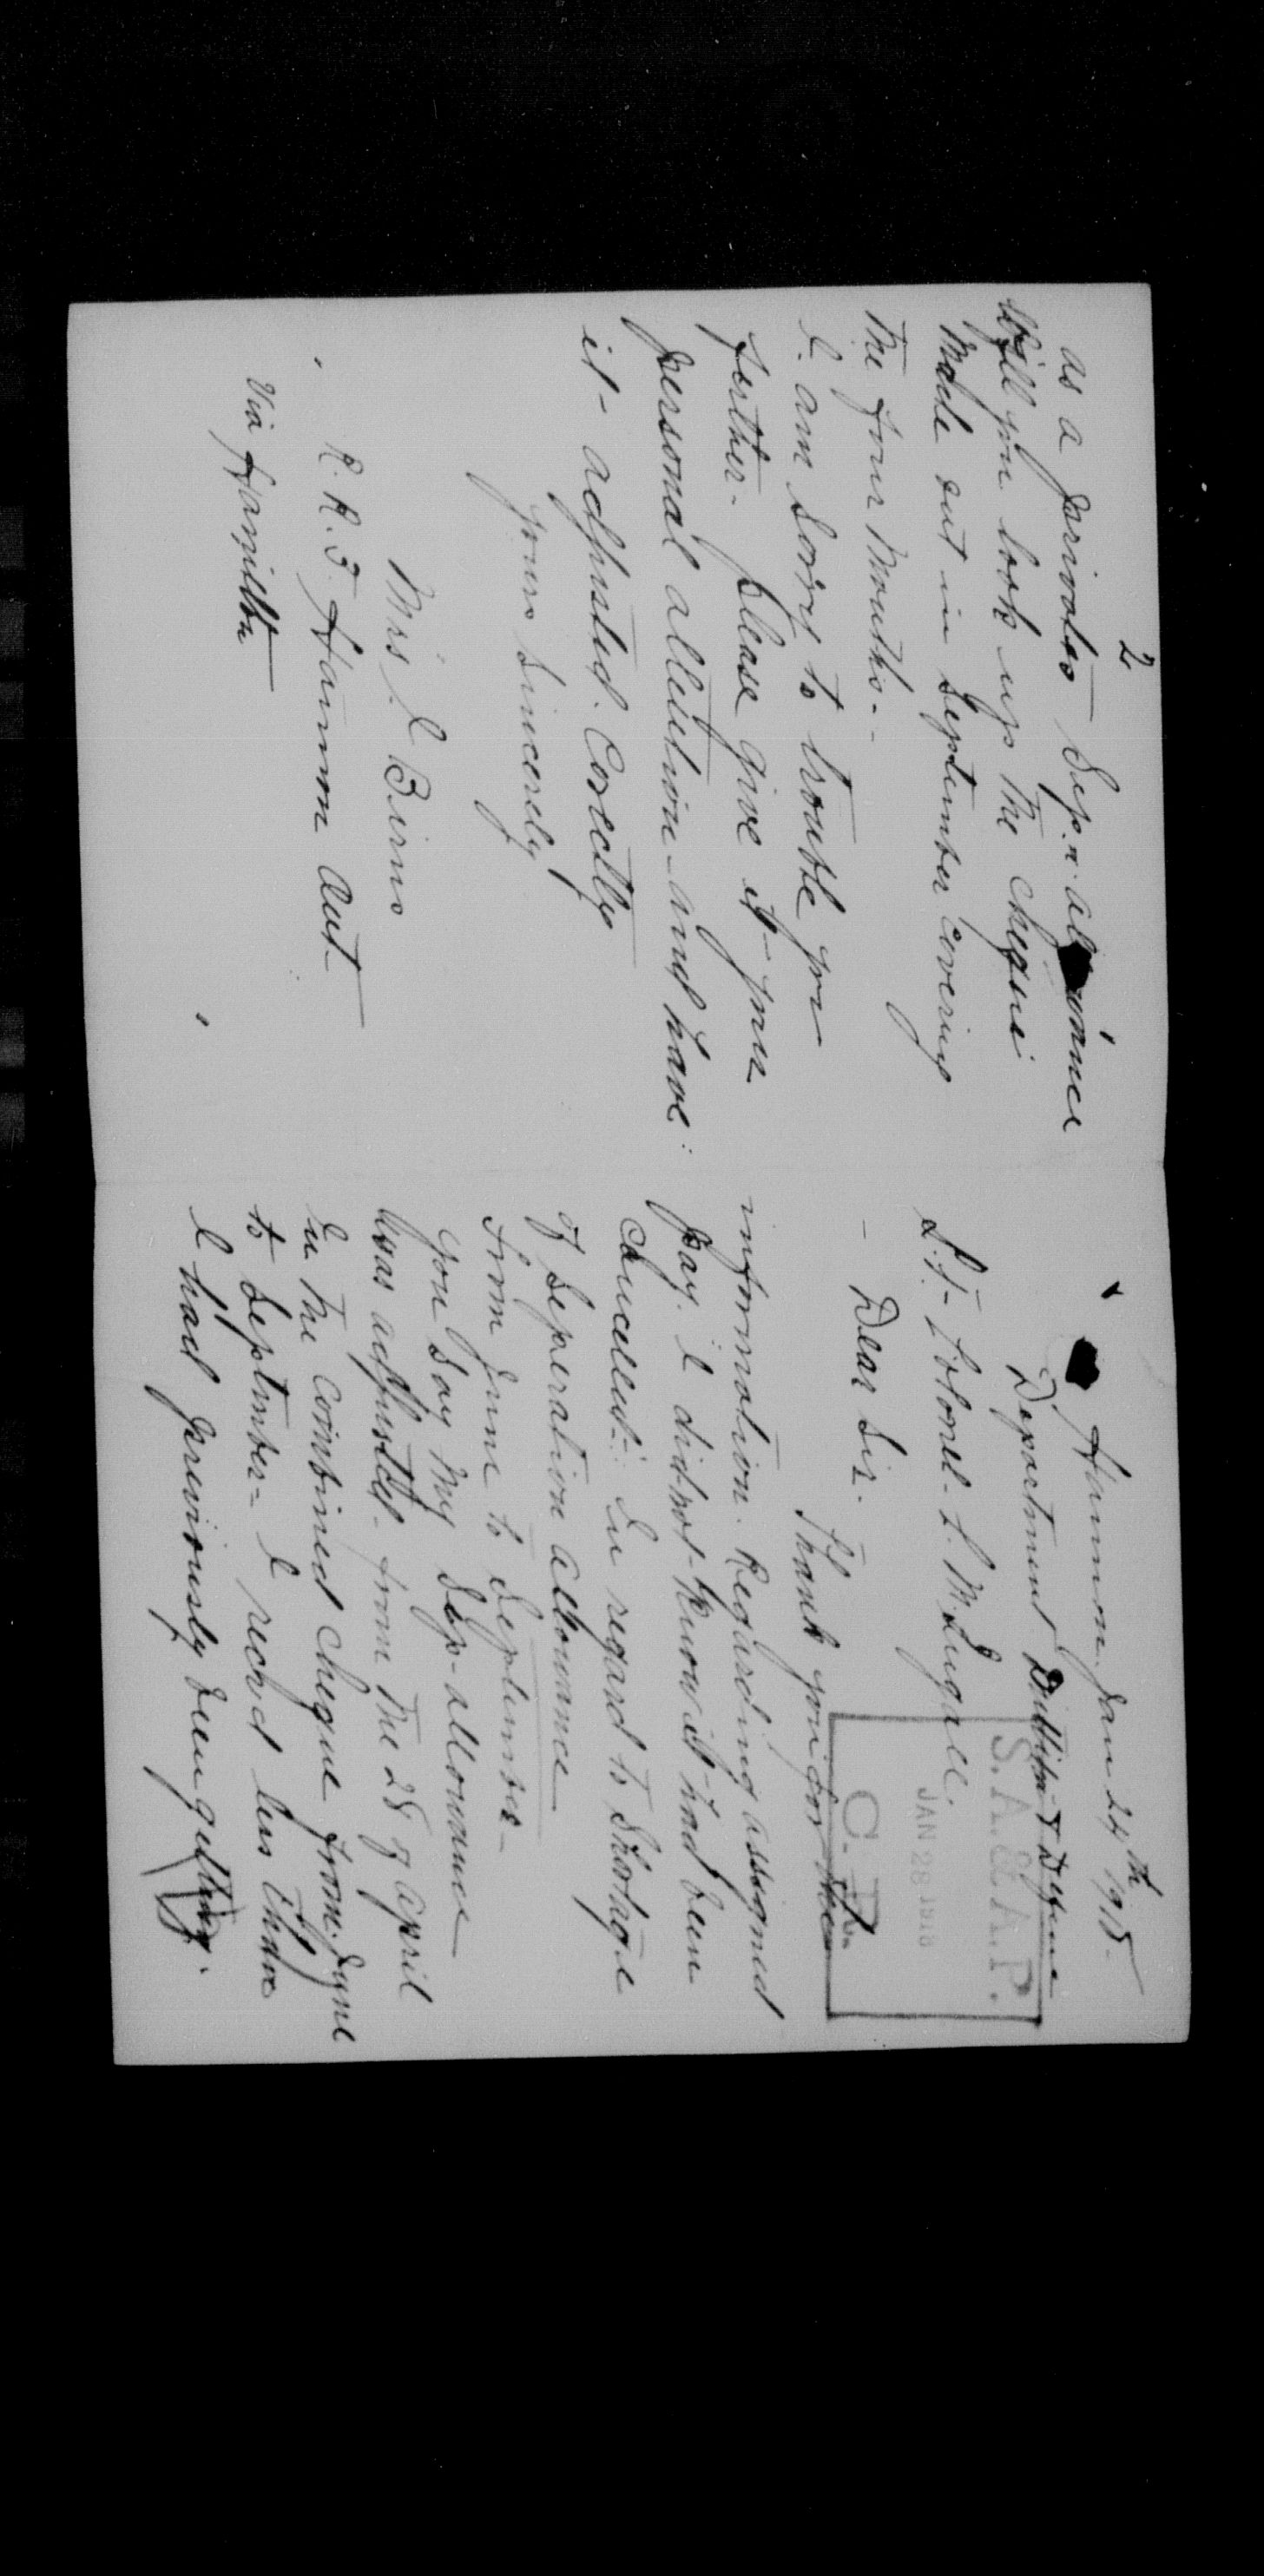 Hannon. Jan 24th 1918-
Department Militia & Defence
S. A. & A. P.
JAN 28 1918
C. R.
Lt- Colonel-
Dear Sir.
Thank you for the
information. Regarding assigned
pay. I did not- know it- had been
cancelled-. In regard to Shortage
of Seperation allowance
From June to September-
you Say My Sep- allowance
Was adjusted- from The 28 of april
In The combined cheque from. June
to September- I recvd less than
I had previously been getting.
2
as a privates Sep.n. allowance
Will you look up The cheque
Made out in September covering
The four Months--
I. am Sorry to trouble you
further- please give it- your
personal attention and have
it- adjusted. Corectly
yours Sincerely
Mrs. I Birns
R. R. 3. Hannon Ont-
Via Hamilton